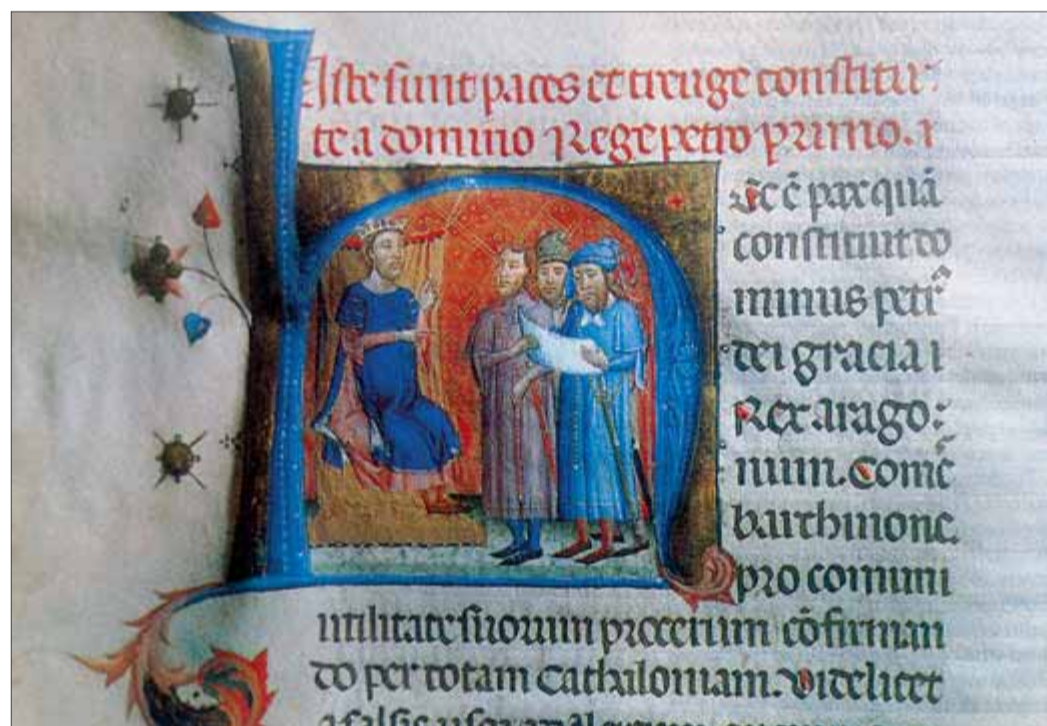 Iste sunt paces et treuge constitu-
te a domino Rege petro primo. a
ec ē pax quā
constituit do
minus petr᷒
dei gracia
Rex arago:
num. Comē
barchinonē
pro comuni
utilitate suorum procerum cōfirman
do per totam Cathaloniam. videlicet
a salsis usque ad